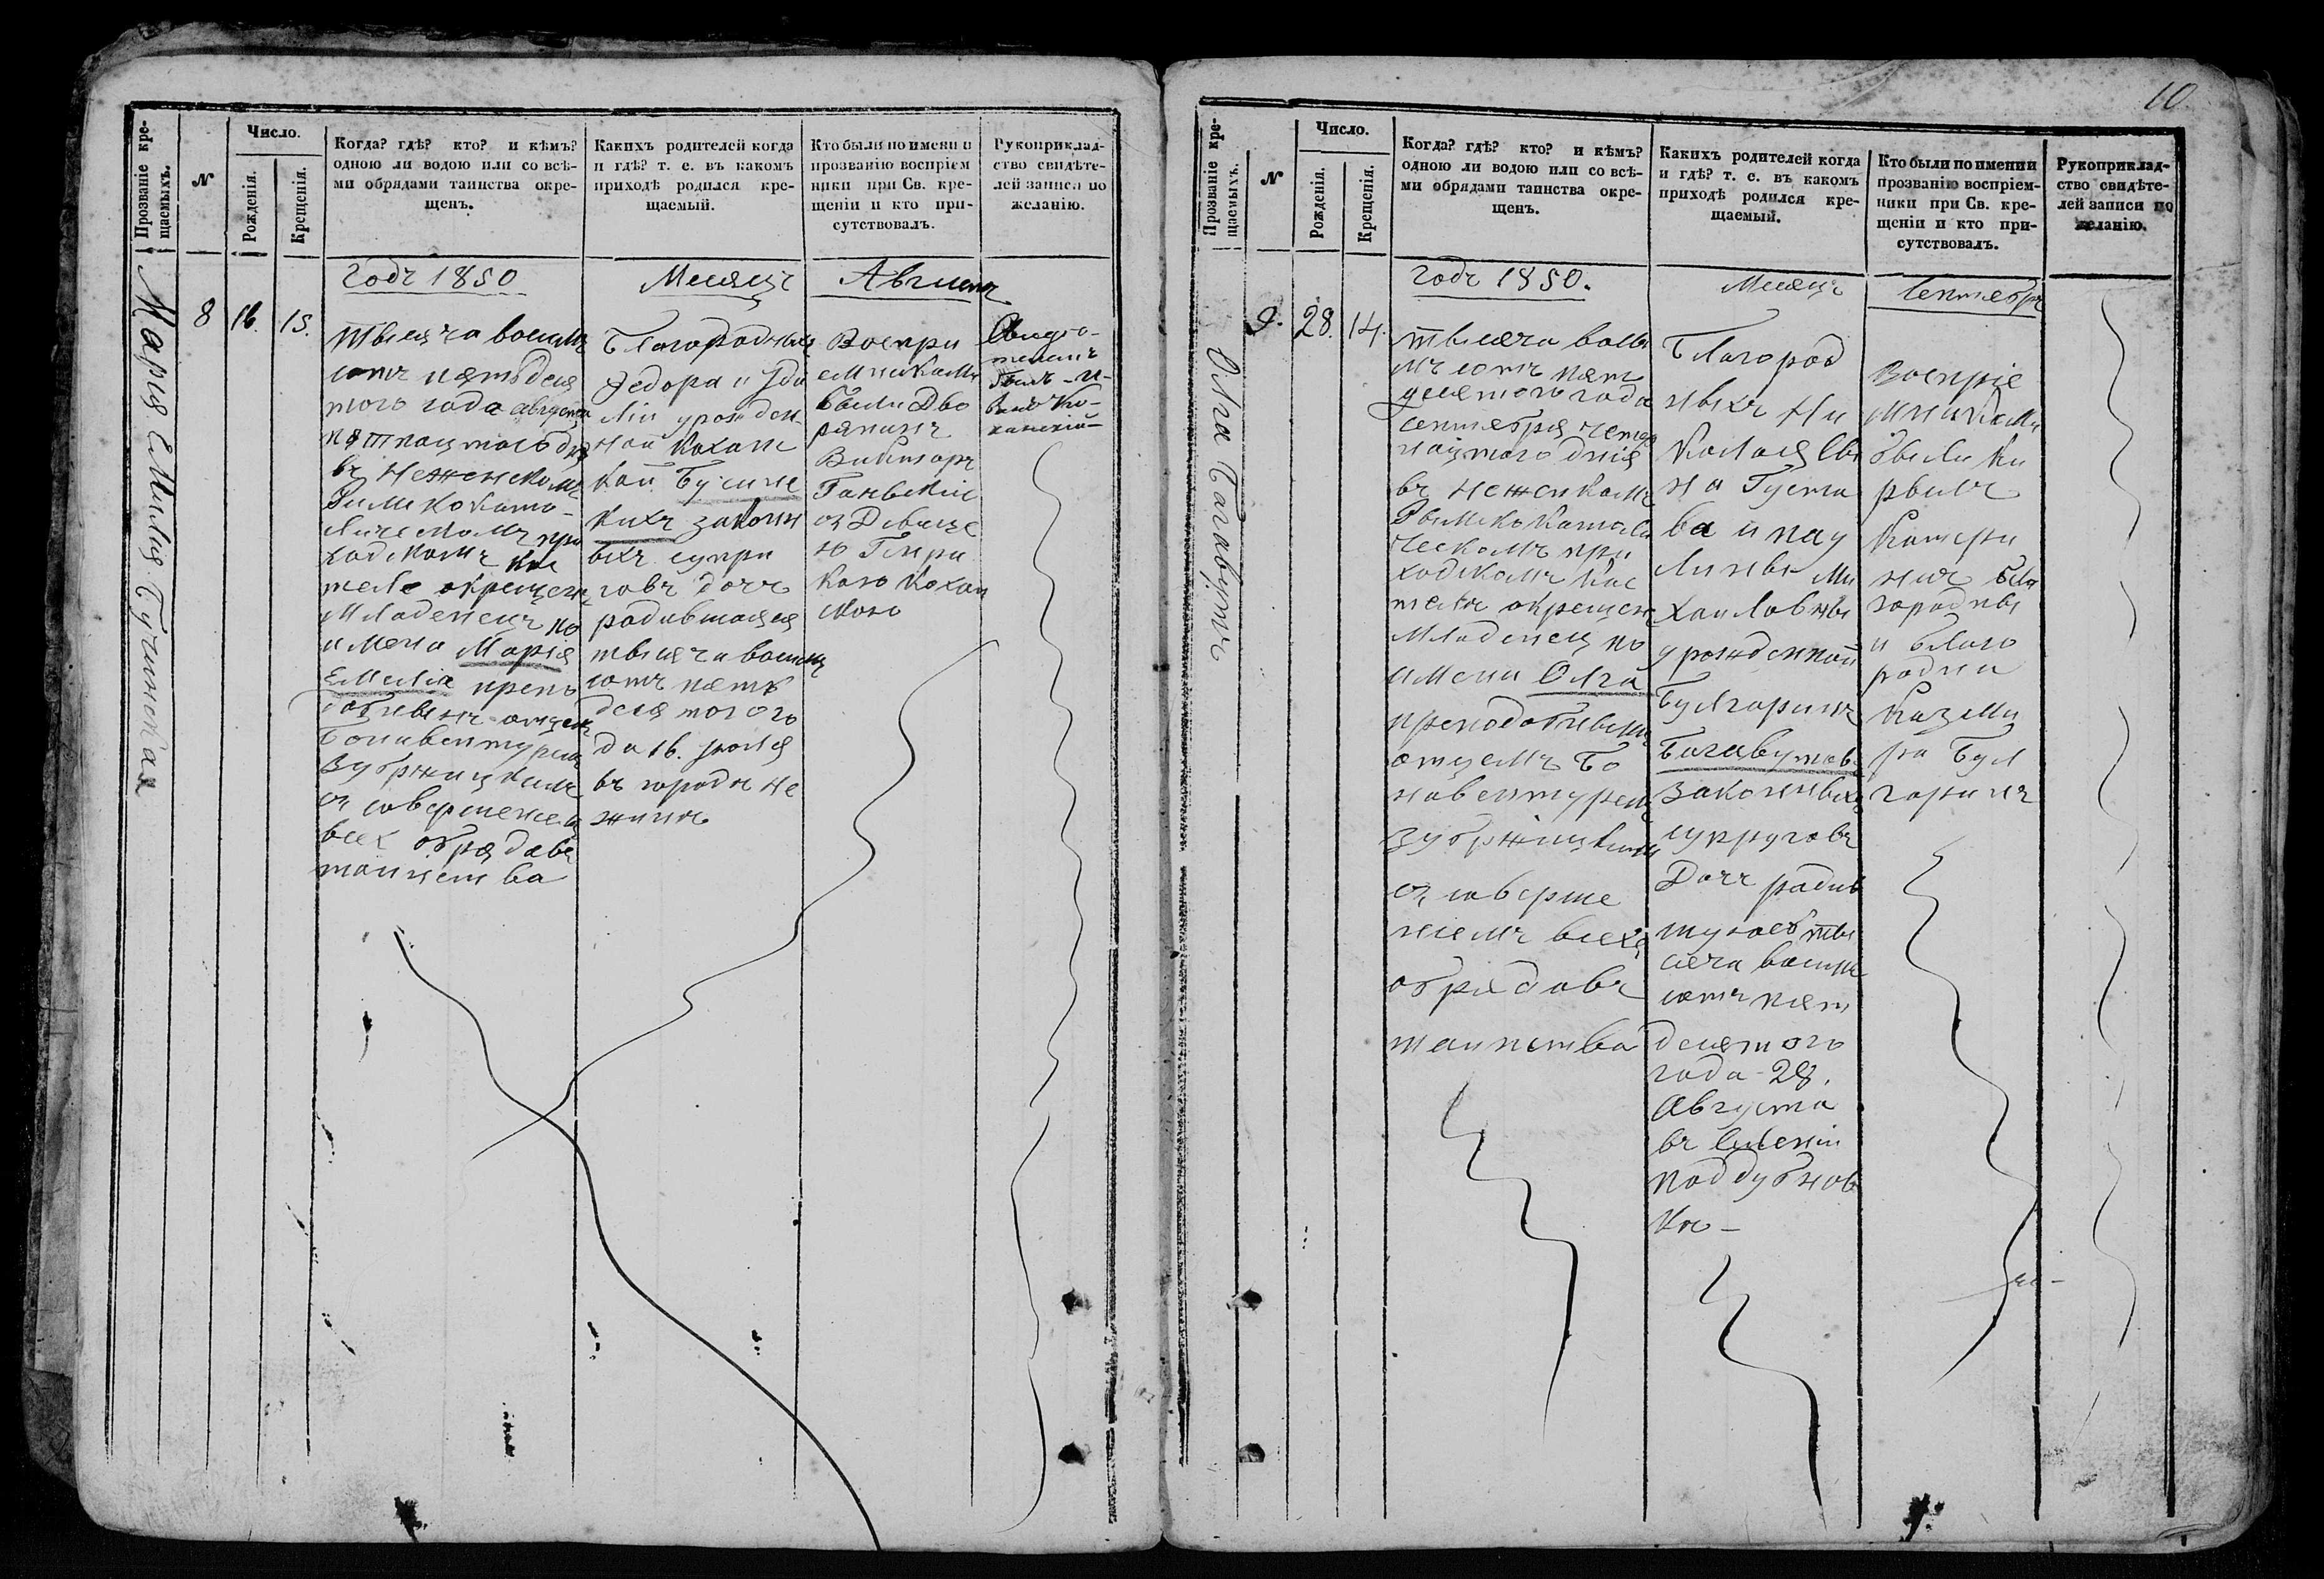 Прозваніе кре-
щаемыхъ.
№
Число.
Рожденія.
Крещенія.
Когда? гдѣ? кто? и кѣмъ?
одною ли водою или со всѣ-
ми обрядами таинства окре-
щенъ.
Какихъ родителей когда
и гдѣ? т. е. въ какомъ
приходѣ родился кре-
щаемый.
Кто были по имени и
прозванію воспріем
ники при Св. кре-
щеніи и кто при-
сутствовалъ.
Рукоприклад-
ство свидѣте-
лей записи по
желанію.
Годъ 1850
Месяцъ
Августъ
Марія Емилія Бучинская
8
16.
15.
тысяча восимъ
сотъ пятьдеся
того года августа
пятнацтого дня
въ Неженскомъ
Римскокато-
лическомъ при
ходскомъ кос
теле окрещенъ
Младенецъ по
имени Марія
Емилія препо
добнымъ отцемъ
Бонавентуромъ
Зубржицкимъ
съ совершенем
всех обрядовъ
таинства
Благородныхъ
Федора и Юли
ліи урожден
ной Кохансс
кой Бучинс
кихъ законн
ыхъ супру
говъ дочъ
родившаяся
тысяча восимъ
сотъ пять
десятого го
да 16. Іюля
въ городе Не
жинъ
Воспри
емниками
были Дво
рянинъ
Викторъ
Ганьскій
съ Девице
ю Генри
кою Кохан
скою
Свидѣ-
телемъ
былъ - И-
ванъ Ко-
ханскій-
10
Прозваніе кре-
щаемыхъ.
№
Число.
Рожденія.
Крещенія.
Когда? гдѣ? кто? и кѣмъ?
одною ли водою или со всѣ-
ми обрядами таинства окре-
щенъ.
Какихъ родителей когда
и гдѣ? т. е. въ какомъ
приходѣ родился кре-
щаемый.
Кто были по имени и
прозванію воспріем-
ники при Св. кре-
щеніи и кто при-
сутствовалъ.
Рукоприклад-
ство свидѣте-
лей записи по
желанію.
Годъ 1850.
Месяцъ
Сентябрь
Олга Багавутъ
9.
28.
14.
тысяча восы
мъ сотъ пять
десятого года
сентября четыр
нацтого дня
въ Неженскомъ
Рымскокатоли
ческомъ при
ходскомъ кос
телъ окрещенъ
Младенец по
имени Олга
преподобнымъ
отцемъ Бо
навентуромъ
Зубржицкимъ
съ соверше
ніемъ всехъ
обрядовъ
таинства
Благород
ныхъ Ни
колая Сы
на Густа
ва и пау
лины Ми
хаиловны
урожденной
Булгаринъ
Багавутовъ
законныхъ
супруговъ
Дочъ родив
шуюсь ты
сяча восимъ
сотъ пят
десятого
года 28.
Августа
въ Селеніи
поддубнов
ке -
Воспріе
мниками
были Ки
рылъ
Катери
ничъ Бла
городны
и благо
родна
Казими
ра Бул
гаринъ